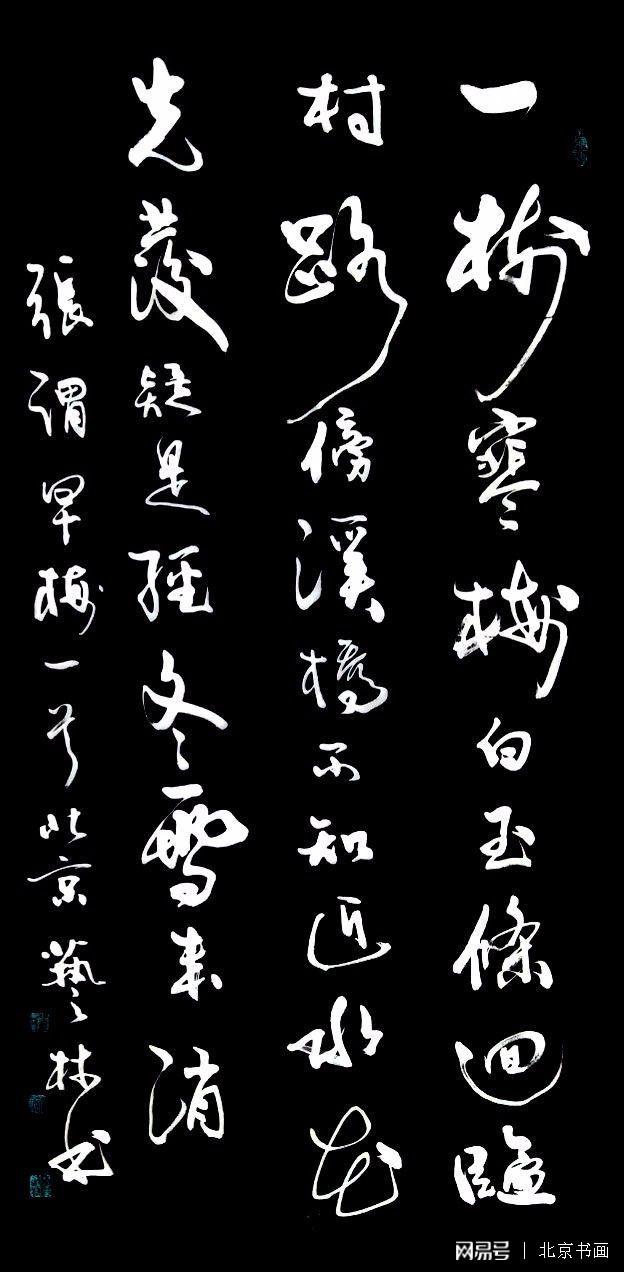 一樹寒梅白玉條迴臨
村路傍溪橋不知近水花
先發疑是經冬雪未消
張謂早梅一首北京藝林書
网易号 | 北京书画